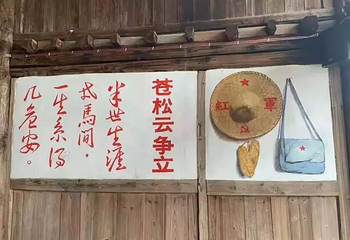 苍松云争立
半世生涯
戎馬間，
一生系得
几危安。
紅軍